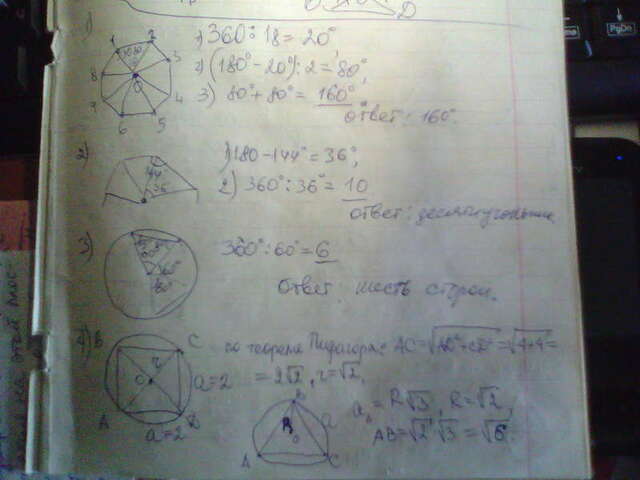 D
1)
1) 360° : 18 = 20°
2) (180° - 20°) : 2 = 80°,
3) 80° + 80° = 160°
ответ: 160°.
1 2 3 4 5 6 7 8
O
2)
1) 180 - 144° = 36°,
2) 360° : 36° = 10
ответ: десятиугольник
144°
36°
3)
360° : 60° = 6
Ответ: шесть сторон.
60°
4) B C
по теореме Пифагора: AC = √AD²+CD² = √4+4 =
= 2√2, r = √2,
O r a = 2
A D
a = 2
a₃ = R√3, R = √2,
AB = √2 · √3 = √6.
B
R a
O
A C
PgDn